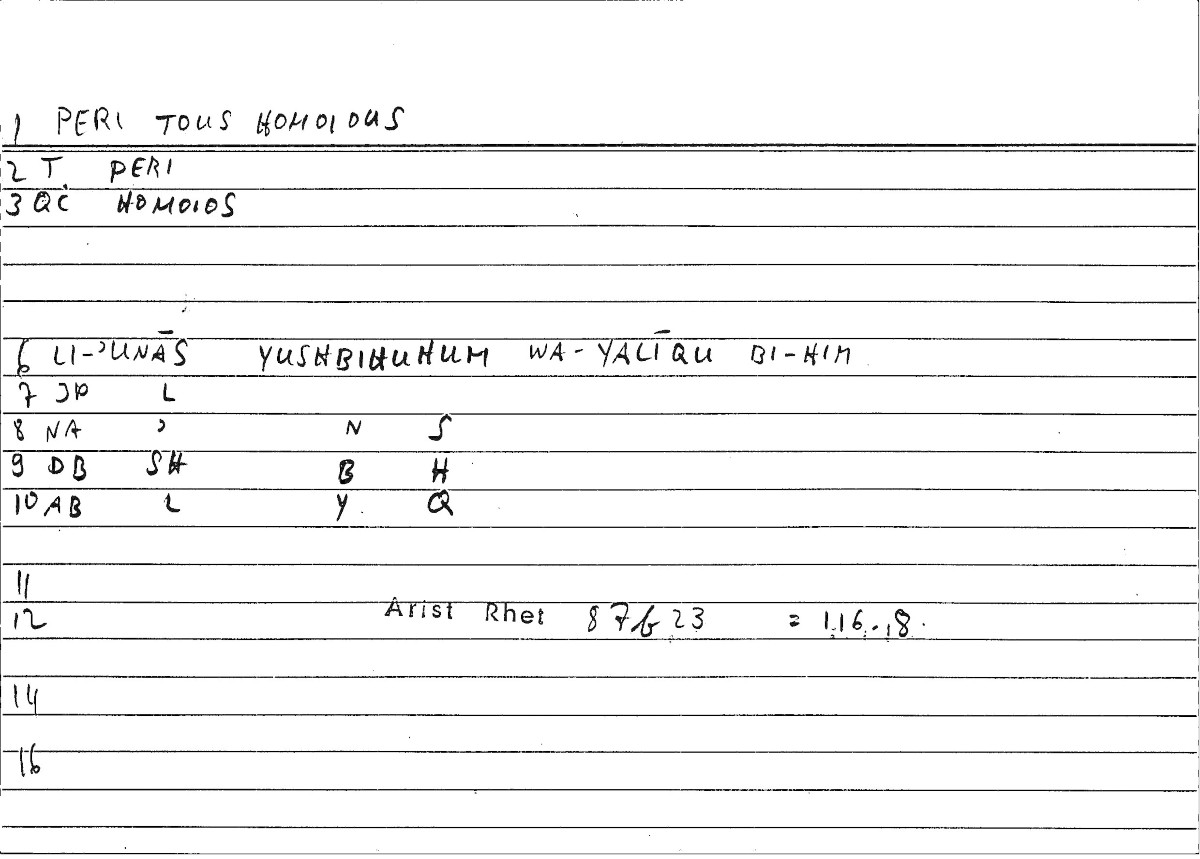 1 PERI TOUS HOMOIOUS
2 T. PERI
3 QC HOMOIOS
6 LI-ʾUNĀS YUSHBIHUHUM WA-YALĪQU BI-HIM
7 JP L
8 NA ʾ N S
9 DB SH B H
10 AB L Y Q
11
12 Arist Rhet 87b23 = 116.18.
14
16